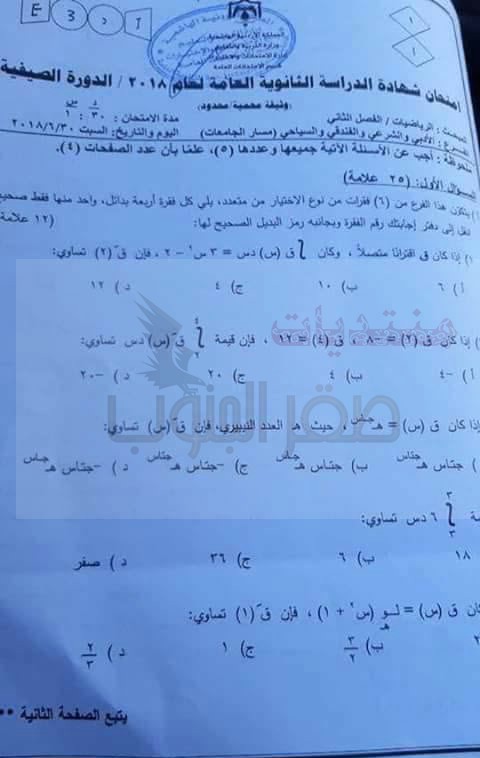 E ٣ د ٢
١
١
المملكة الأردنية الهاشمية
وزارة التربية والتعليم
إدارة الامتحانات والاختبارات
قسم الامتحانات العامة
امتحان شهادة الدراسة الثانوية العامة لعام ٢٠١٨ / الدورة الصيفية
(وثيقة محمية/محدود)
د س
المبحث : الرياضيات / الفصل الثاني مدة الامتحان: ٣٠ : ١
الفرع : الأدبي والشرعي والفندقي والسياحي (مسار الجامعات) اليوم والتاريخ: السبت ٢٠١٨/٦/٣٠
ملحوظة : أجب عن الأسئلة الآتية جميعها وعددها (٥)، علمًا بأن عدد الصفحات (٤).
السؤال الأول: (٢٥ علامة)
يتكون هذا الفرع من (٦) فقرات من نوع الاختيار من متعدد، يلي كل فقرة أربعة بدائل، واحد منها فقط صحيح
انقل إلى دفتر إجابتك رقم الفقرة وبجانبه رمز البديل الصحيح لها: (١٢ علامة
١) إذا كان ق اقترانًا متصلاً ، وكان ∫ ق (س) دس = ٣ س² - ٢ ، فإن قَ (٢) تساوي:
أ ) ٦ ب) ١٠ ج) ٤ د ) ١٢
) إذا كان ق (٢) = -٨ ، ق (٤) = ١٢ ، فإن قيمة ∫٢^٤ قَ (س) دس تساوي:
أ ) -٤ ب) ٤ ج) ٢٠ د ) -٢٠
إذا كان ق (س) = هـ^جاس ، حيث هـ العدد النيبيري، فإن قَ (س) تساوي:
) جتاس هـ^جتاس ب) جتاس هـ^جاس ج) -جتاس هـ^جتاس د ) -جتاس هـ^جاس
مة ∫٣^٣ ٦ دس تساوي:
١٨ ب) ٦ ج) ٣٦ د ) صفر
كان ق (س) = لـو هـ (س² + ١) ، فإن قَ (١) تساوي:
٢ ب) ٣/٢ ج) ١ د ) ٢/٣
يتبع الصفحة الثانية ••
منتديات
صقر الجنوب